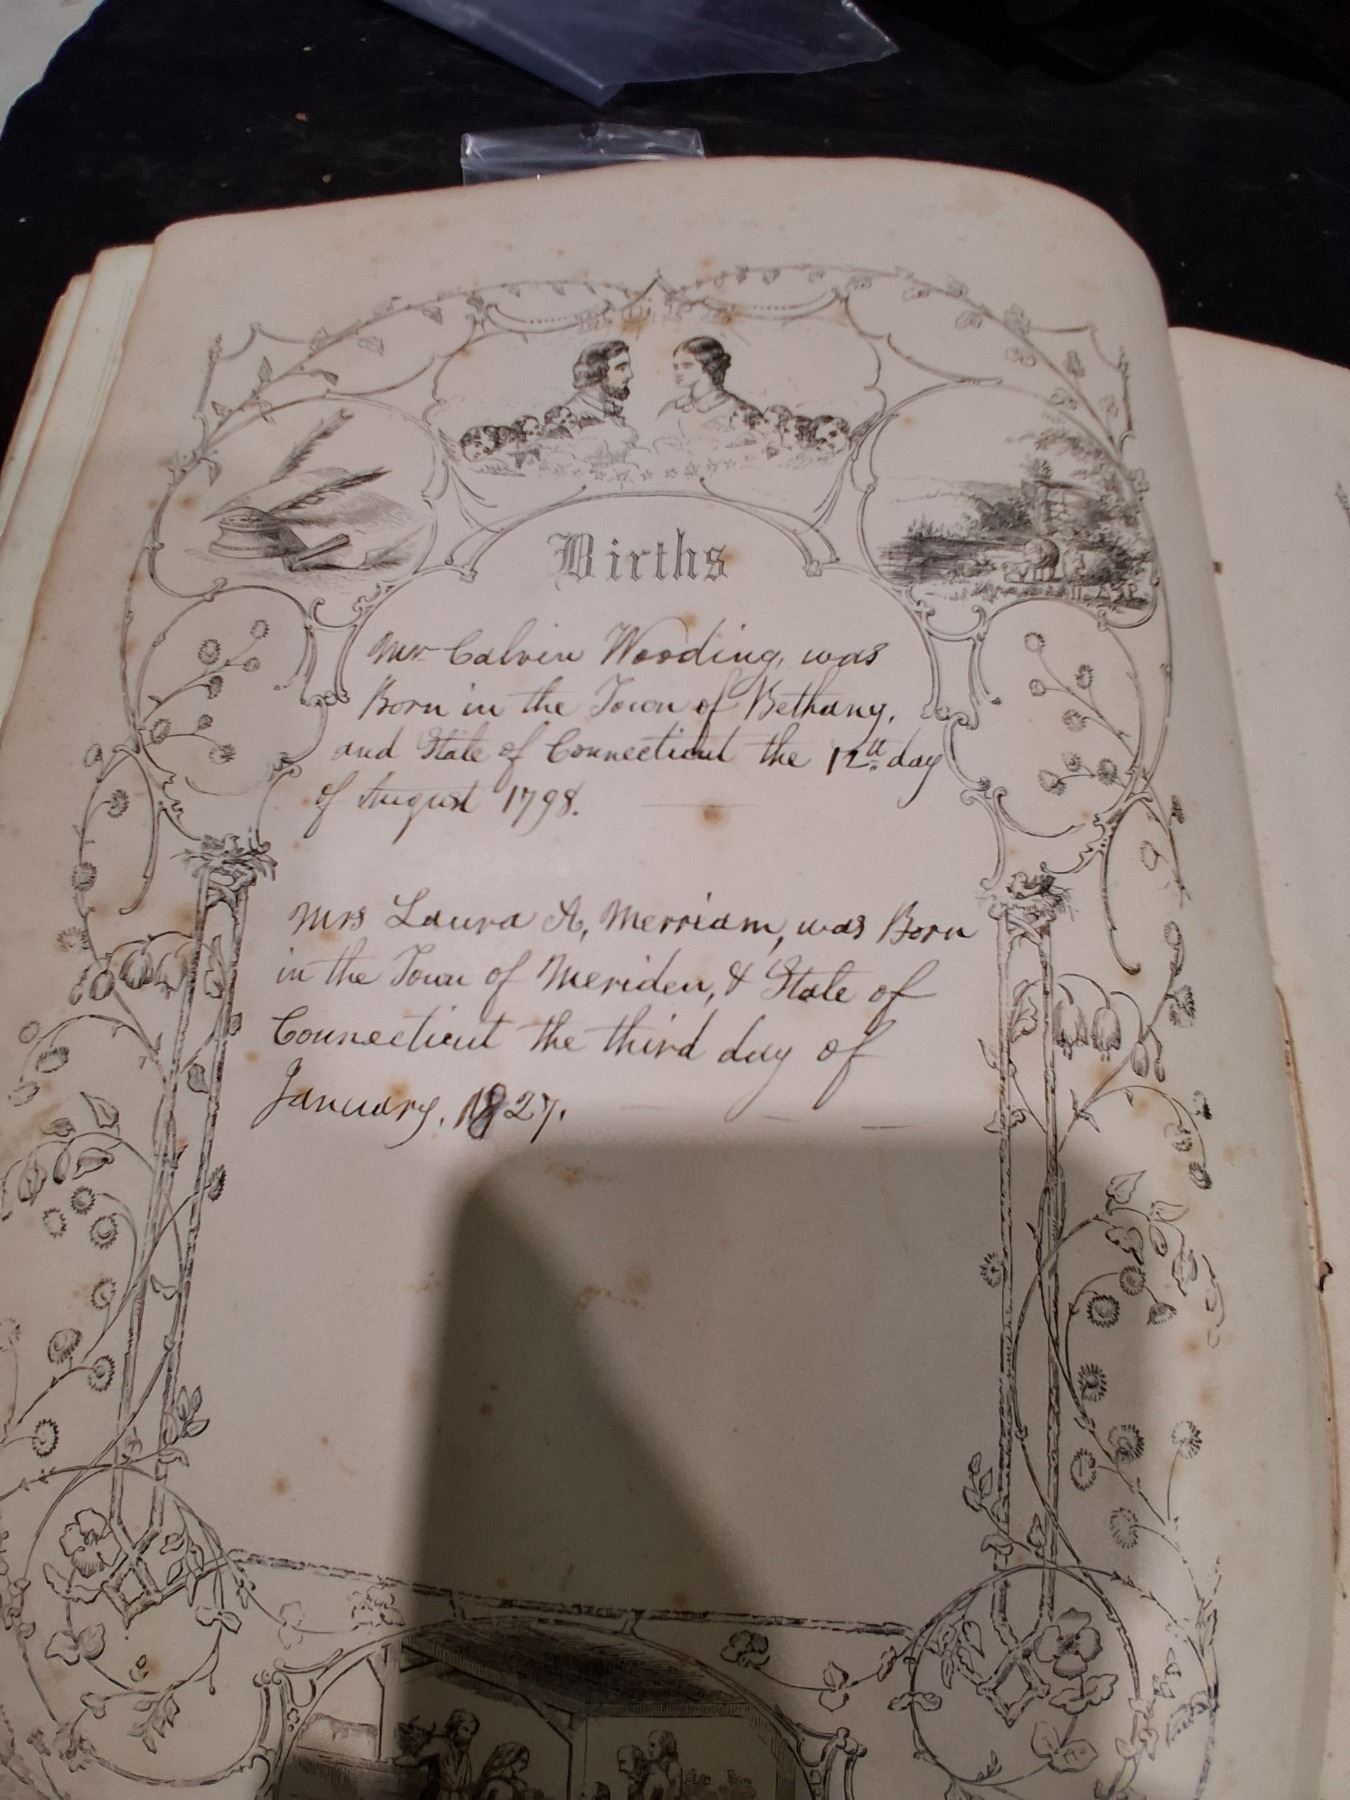 Births
Mr Calvin Wooding, was
Born in the Town of Bethany,
and State of Connecticut the 12th day
of August 1798.
Mrs Laura A, Merriam, was Born
in the Town of Meriden, & State of
Connecticut the third day of
January, 1827.